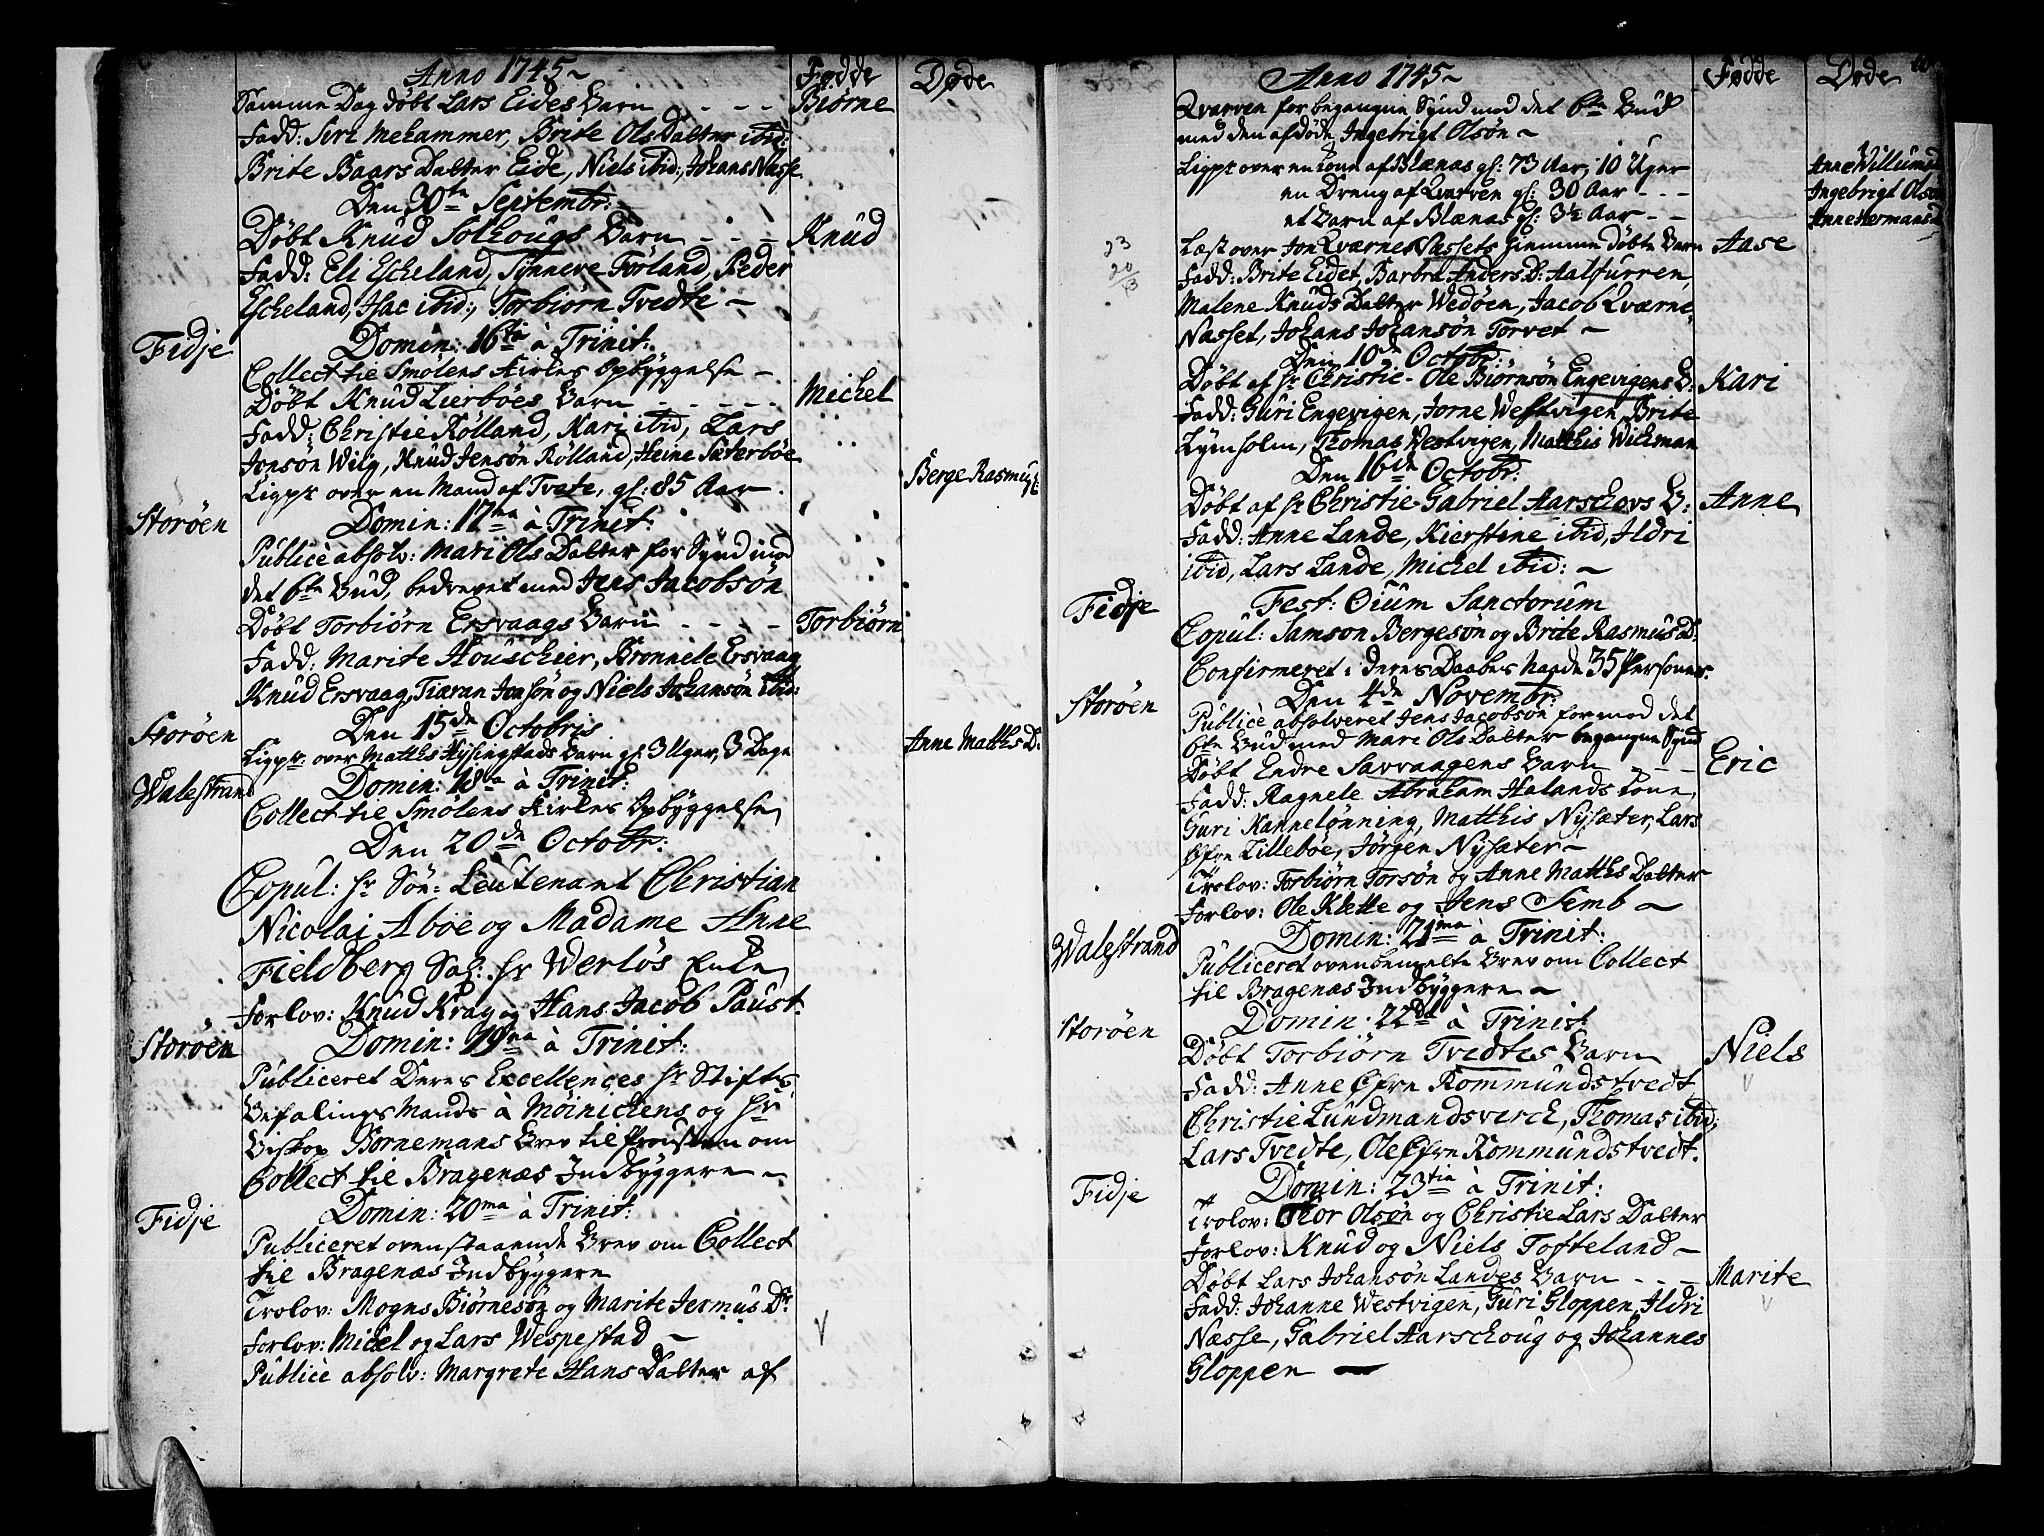 Anno 1745~
Fødde
Døde
Samme Dag døbt Lars Eides Barn - - - -
Biørne
Fadd: Siri Mehammer, Brite Ols Dalter ibid:
Brite Baars Dalter Eide, Niels ibid:, Johans Næsse
Den 30te Septembr:
Døbt Knud Solhougs Barn - - -
Knud
Fadd: Eli Escheland, Synneve Førland, Peder
Escheland, Isac ibid:, Torbiørn Tvedte -
Fidje
Domin: 16ta à Trinit:
Collect til Smølens Kirkes Opbyggelse -
Døbt Knud Lierbøes Barn - - - - -
Michel
Fadd: Christie Rølland, Kari ibid, Lars
Jonsøn Wiig, Knud Jensøn Rølland, Heine Sæterbøe
Ligpr over en Mand af Tvete, gl: 85 Aar.
Berge Rasmus S:
Storøen
Domin: 17ma à Trinit:
Publice absolv: Mari Ols Dalter for Synd mod
det 6te Bud, bedrevet med Jens Jacobsøn
Døbt Torbiørn Ersvaags Barn - - - -
Torbiørn
Fadd: Marite Houschier, Brønnele Ersvaag
Knud Ersvaag, Tiæran Jonsøn og Niels Johansøn ibid:
Storøen
Den 15de Octobris
Ligpr: over Matthis Hysingstads Barn gl: 3 Uger, 3 Dage
Anne Matthis D:
Walestrand
Domin: 18va à Trinit:
Collect til Smølens Kirkes Opbyggelse
Den 20de Octobr:
Copul: Hr Søn: Leutenant Christian
Nicolai Abøe og Madame Anne
Fieldberg Sal: Hr Werløs Enke
Forlov: Knud Krag og Hans Jacob Paust.
Storøen
Domin: 19na à Trinit:
Publiceret Deres Excellences Hr Stifts
Befalings Mands à Møinichens og Hr
Biskop Bornemans Brev til Prousten om
Collect til Bragenæs Indbyggere -
Fidje
Domin: 20ma à Trinit:
Publiceret ovenstaaende Brev om Collect
til Bragenæs Indbyggere
Trolov: Mogns Biørnesøn og Marite Jermus Dr
Forlov: Michel og Lars Wespestad -
Publice absolv: Margrete Hans Dalter af
Anno 1745~
Fødde
Døde
Qvarven for begangne Synd mod det 6te Bud
med den afdøde Ingebrigt Olsøn -
Ligpr over en Kone af Blænas gl: 73 Aar, 10 Uger
Anne Willums D
en Dreng af Qvarven gl: 30 Aar - - -
Ingebrigt Olsøn
et Barn af Blænas gl: 3½ Aar - -
Anne Hermans D
23
20/13
Læst over Jon Qværne Nassets hiemme døbte Barn
Aase
Fadd: Brite Eidet, Barbra Anders D: Aalfurren,
Malene Knuds Dalter Wedøen, Jacob Qværne
Nasset, Johans Johansøn Torvet -
Den 10de Octobr:
Døbt af Hr Christie - Ole Biørnsøn Engevigens B:
Kari
Fadd: Guri Engevigen, Jorne Westvigen, Brite
Lymholm, Thomas Vestvigen, Matthis Wichman
Den 16de Octobr:
Døbt af Hr Christie - Gabriel Aarschovs B:
Anne
Fadd: Anne Lande, Kierstine ibid, Ildri
ibid, Lars Lande, Michel ibid: -
Fidje
Fest: Oium Sanctorum
Copul: Samson Bergesøn og Brite Rasmus D.
Confirmeret i deres Daabes Naade 35 Personer.
Storøen
Den 4de Novembr:
Publice absolveret Jens Jacobsøn for mod det
6te Bud med Mari Ols Dalter begangne Synd
Døbt Endre Sarvaagens Barn - - -
Eric
Fadd: Ragnele Abraham Halands Kone,
Guri Kannelønning, Matthis Nysæter, Lars
Øfre Lillebøe, Jørgen Nysæter -
Trolov: Torbiørn Torsøn og Anne Matthis Dalter
Forlov: Ole Klette og Jens Semb -
Walestrand
Domin: 21ma à Trinit:
Publiceret ovenbemelte Brev om Collect
til Bragenæs Indbyggere -
Storøen
Domin: 22da à Trinit:
Døbt Torbiørn Tvedtes Barn
Niels
Fadd: Anne Øfre Rommundstvedt
Christie Lundmandsverck, Thomas ibid,
Lars Tvedte, Ole Øfre Rommundstvedt.
Fidje
Domin: 23tia à Trinit:
Trolov: Thor Olsøn og Christie Lars Dalter
Forlov: Knud og Niels Tofteland -
Døbt Lars Johansøn Landes Barn - - -
Marite
Fadd: Johanne Westvigen, Guri Gloppen, Ildri
Næsse, Gabriel Aarschoug og Johannes
Gloppen -